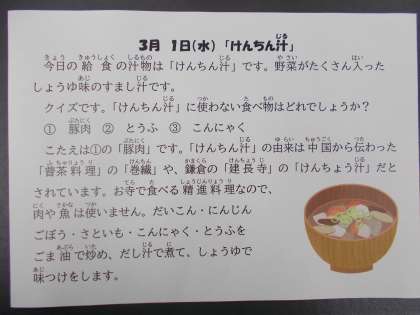 3月 1日(水)「けんちん汁」
今日の給食の汁物は「けんちん汁」です。野菜がたくさん入った
しょうゆ味のすまし汁です。
クイズです。「けんちん汁」に使わない食べ物はどれでしょうか?
① 豚肉 ② とうふ ③ こんにゃく
こたえは①の「豚肉」です。「けんちん汁」の由来は中国から伝わった
「普茶料理」の「巻繊」や、鎌倉の「建長寺」の「けんちょう汁」だと
されています。お寺で食べる精進料理なので、
肉や魚は使いません。だいこん・にんじん
ごぼう・さといも・こんにゃく・とうふを
ごま油で炒め、だし汁で煮て、しょうゆで
味つけをします。